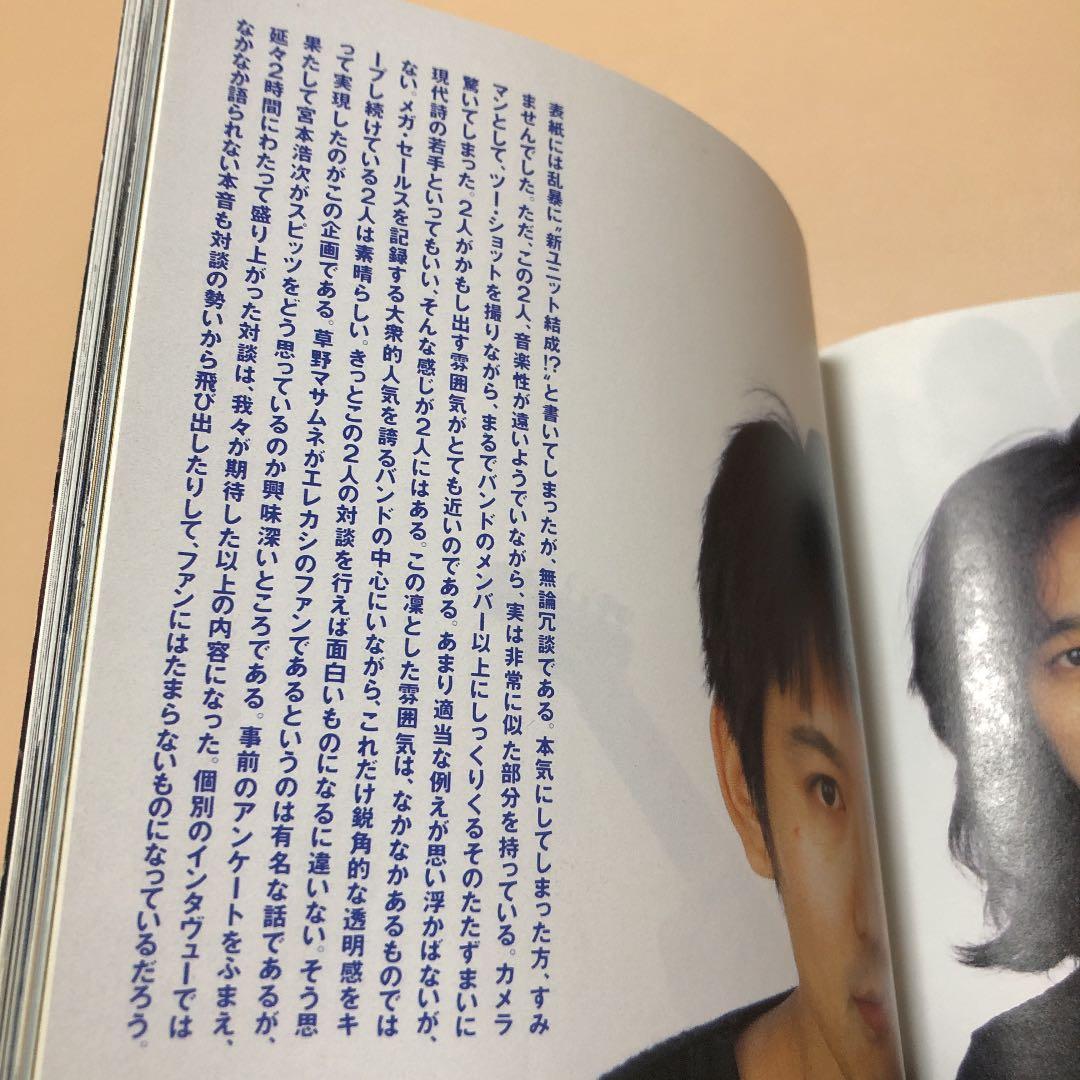 表紙には乱暴に〝新ユニット結成!?〟と書いてしまったが、無論冗談である。本気にしてしまった方、すみ
ませんでした。ただ、この2人、音楽性が遠いようでいながら、実は非常に似た部分を持っている。カメラ
マンとして、ツー・ショットを撮りながら、まるでバンドのメンバー以上にしっくりくるそのたたずまいに
驚いてしまった。2人がかもし出す雰囲気がとても近いのである。あまり適当な例えが思い浮かばないが、
現代詩の若手といってもいい、そんな感じが2人にはある。この凛とした雰囲気は、なかなかあるものでは
ない。メガ・セールスを記録する大衆的人気を誇るバンドの中心にいながら、これだけ鋭角的な透明感をキ
ープし続けている2人は素晴らしい。きっとこの2人の対談を行えば面白いものになるに違いない。そう思
って実現したのがこの企画である。草野マサムネがエレカシのファンであるというのは有名な話であるが、
果たして宮本浩次がスピッツをどう思っているのか興味深いところである。事前のアンケートをふまえ、
延々2時間にわたって盛り上がった対談は、我々が期待した以上の内容になった。個別のインタヴューでは
なかなか語られない本音も対談の勢いから飛び出したりして、ファンにはたまらないものになっているだろう。